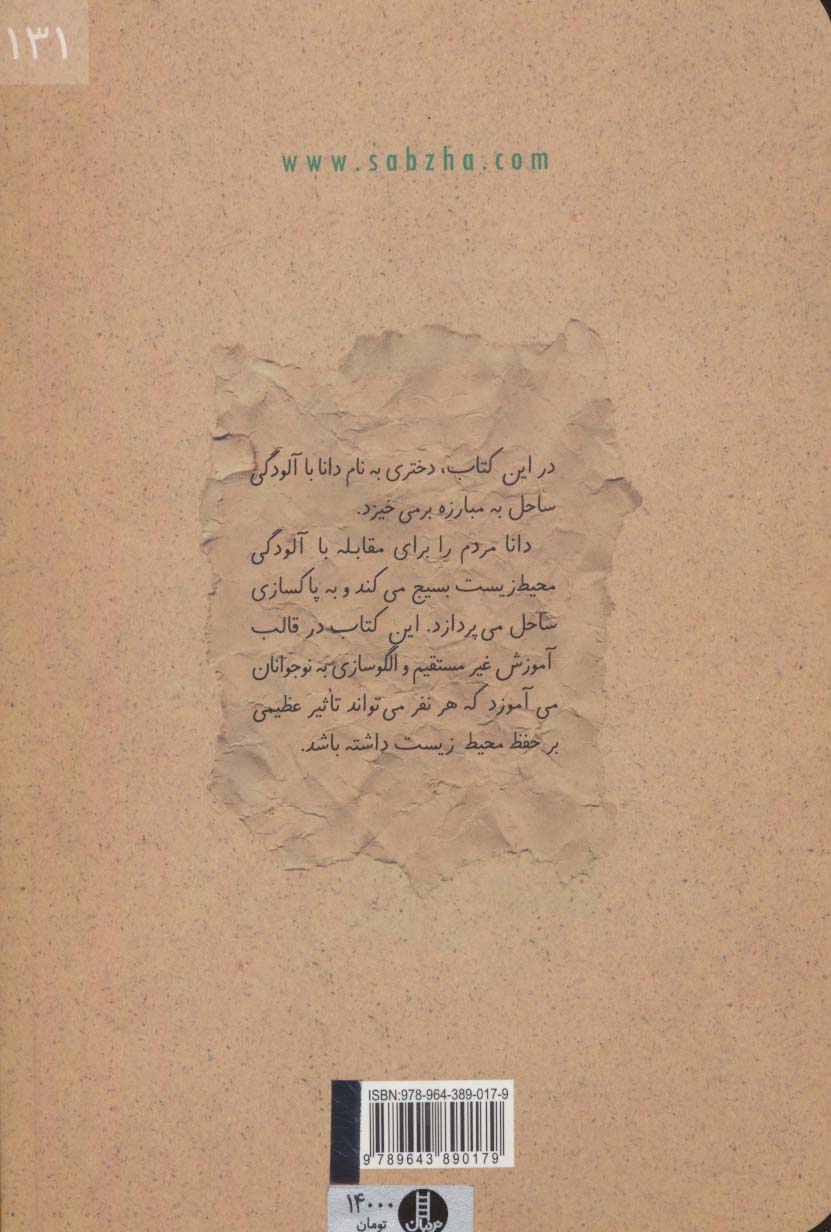 ۱۳۱
www.sabzha.com
در این کتاب، دختری به نام دانا با آلودگی
ساحل به مبارزه برمی خیزد.
دانا مردم را برای مقابله با آلودگی
محیط‌زیست بسیج می کند و به پاکسازی
ساحل می پردازد. این کتاب در قالب
آموزش غیر مستقیم و الگوسازی به نوجوانان
می آموزد که هر نفر می تواند تأثیر عظیمی
بر حفظ محیط زیست داشته باشد.
ISBN:978-964-389-017-9
9 789643 890179
۱۴۰۰۰
تومان
نردبان